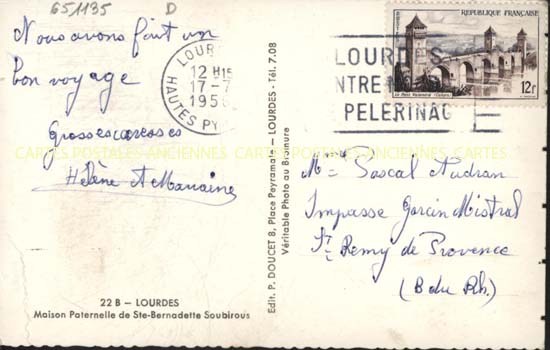 651135 D
Nous avons fait un
bon voyage
Grosses caresses
Hélène et Marraine
22 B — LOURDES
Maison Paternelle de Ste-Bernadette Soubirous
Edit. P. DOUCET 8, Place Peyramale — LOURDES - Tél. 7.08
Véritable Photo au Bromure
LOURDES
12 H15
17-7
195
HAUTES PY
LOURDES
NTRE
PELERINAG
REPUBLIQUE FRANÇAISE
Le Pont Valentré (Cahors)
12f
Mme Pascal Audran
Impasse Garcin Mistral
St Remy de Provence
(B du Rh.)
CARTES POSTALES ANCIENNES CARTES POSTALES ANCIENNES CARTES